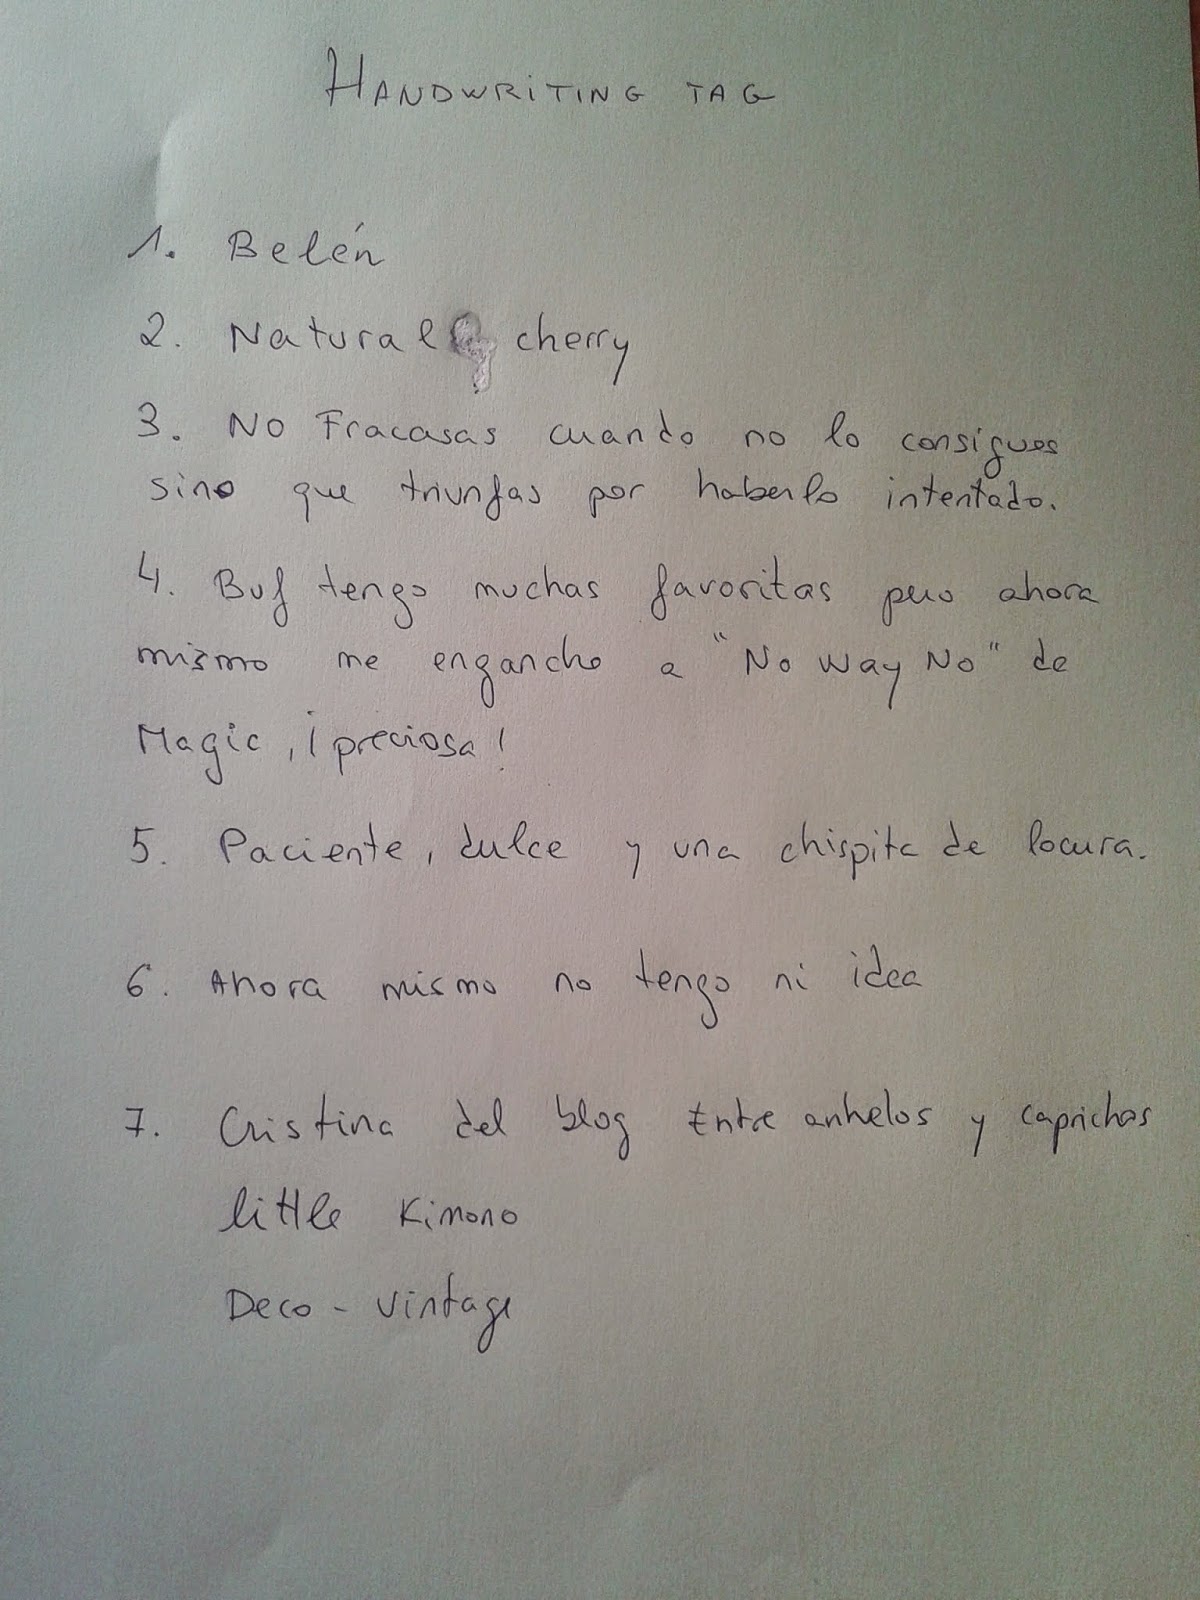 HANDWRITING TAG
1. Belén
2. Natural cherry
3. No Fracasas cuando no lo consigues
sino que triunfas por haberlo intentado.
4. Buf tengo muchas favoritas pero ahora
mismo me engancho a "No Way No" de
Magic, ¡preciosa!
5. Paciente, dulce y una chispita de locura.
6. Ahora mismo no tengo ni idea
7. Cristina del blog Entre anhelos y caprichos
little Kimono
Deco - Vintage